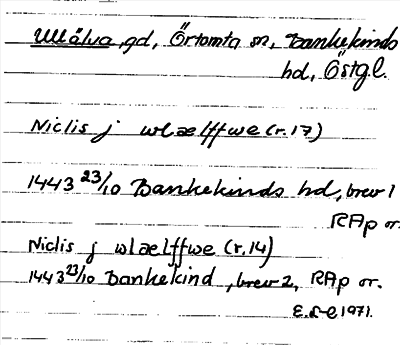 Ullälva, gd, Örtomta sn, Bankekinds
hd, Östgl.
Niclis j wlælffwe (r. 17)
1443 23/10 Bankekinds hd, brev 1
RAp or.
Niclis j wlælffwe (r. 14)
1443 23/10 Bankekind, brev 2, RAp or.
1971.